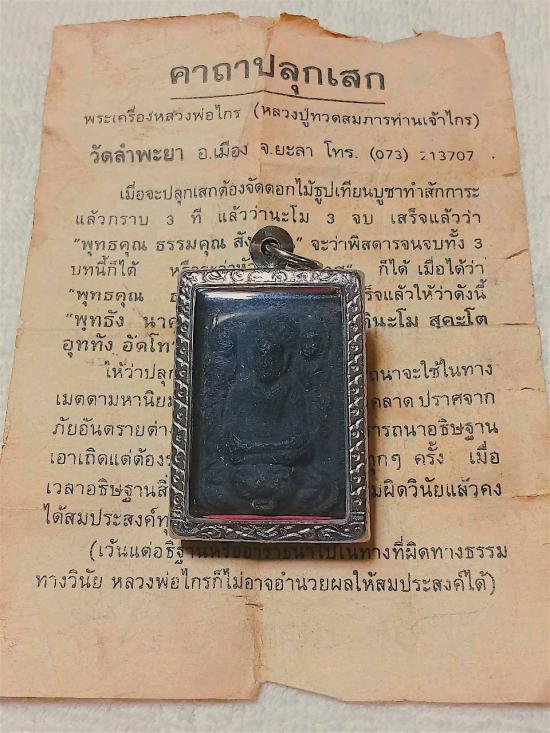 คาถาปลุกเสก
พระเครื่องหลวงพ่อไกร (หลวงปู่ทวดสมภารท่านเจ้าไกร)
วัดลำพะยา อ.เมือง จ.ยะลา โทร. (073) 213707
เมื่อจะปลุกเสกต้องจัดดอกไม้ธูปเทียนบูชาทำสักการะ
แล้วกราบ 3 ที แล้วว่านะโม 3 จบ เสร็จแล้วว่า
"พุทธคุณ ธรรมคุณ จะว่าพิสดารจนจบทั้ง 3
บทนี้ก็ได้ ก็ได้ เมื่อได้ว่า
"พุทธคุณ แล้วให้ว่าดังนี้
"พุทธัง นะโม สุคะโต
อุททัง
ให้ว่า จะใช้ในทาง
เมตตามหานิยม ปราศจาก
ภัยอันตราย อธิษฐาน
เอาเถิดแต่ต้อง ทุกๆ ครั้ง เมื่อ
เวลาอธิษฐาน ผิดวินัยแล้วคง
ได้สมประสงค์
(เว้นแต่อธิฐานหรืออาราธนาไปในทางที่ผิดทางธรรม
ทางวินัย หลวงพ่อไกรก็ไม่อาจอำนวยผลให้สมประสงค์ได้)